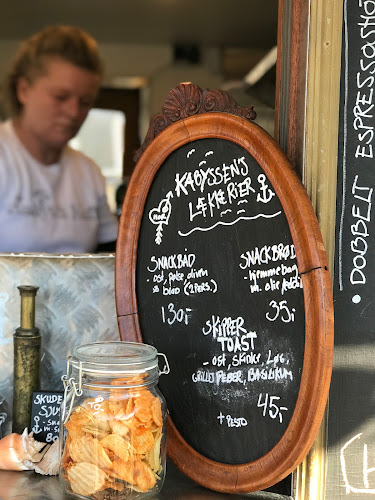 KABYSSENS
LÆKERIER
SNACKBÅD
- ost, pølse, oliven
& brød (2 PERS.)
130,-
SNACKBRØD
- hjemmebag
m. olie
35,-
SKIPPER
TOAST
- OST, SKINKE, LØG,
GRILLET PEBER, BASILIKUM
+ PESTO
45,-
• DOBBELT ESPRESSO
SKUDE
SJUS